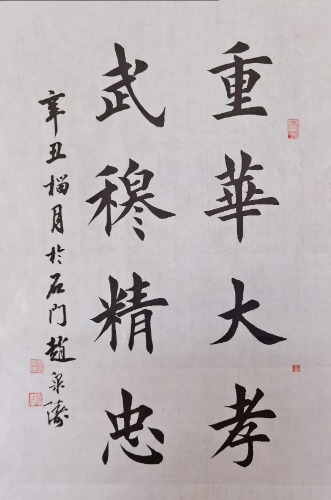 重華大孝
武穆精忠
辛丑榴月於石門趙泉濤